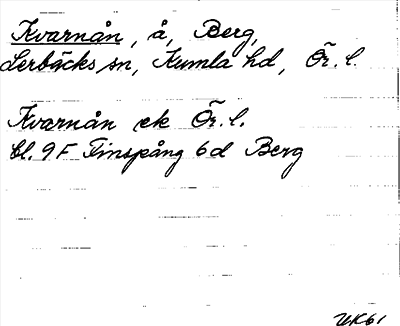 Kvarnån, å, Berg,
Lerbäcks sn, Kumla hd, Ör. l.
Kvarnån ek Ör. l.
bl. 9F Finspång 6d Berg
UK61